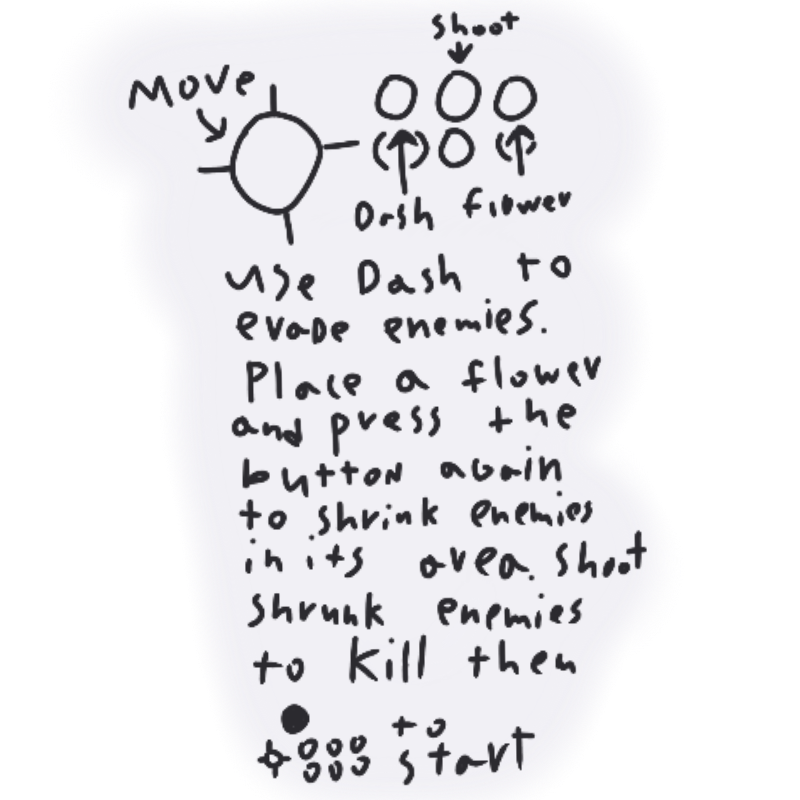 shoot
Move
Dash flower
use Dash to
evade enemies.
Place a flower
and press the
button again
to shrink enemies
in its area. shoot
shrunk enemies
to kill then
to
start